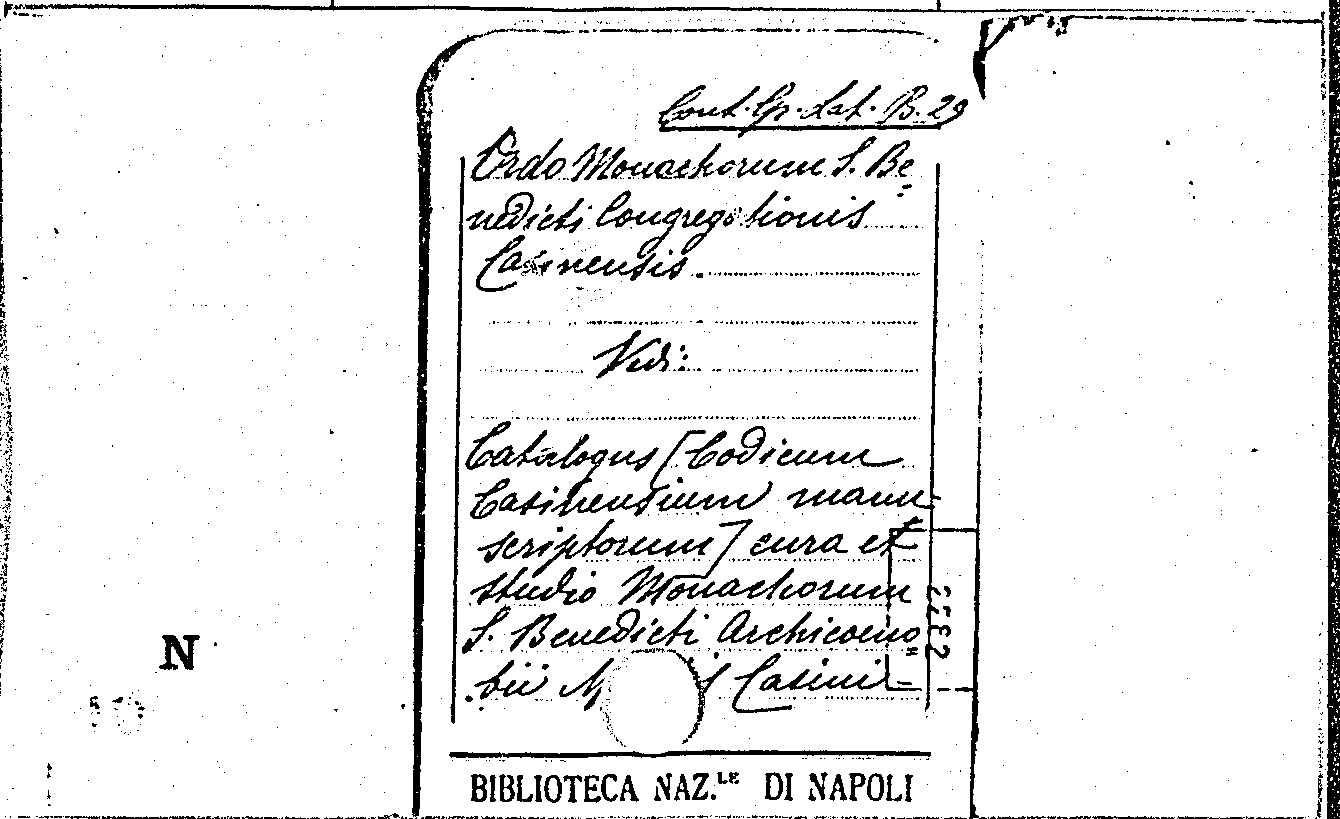 Cont. Gr. Lat. B. 29
Ordo Monachorum S. Be
nedicti Congregationis
Casinensis.
Vedi:
Catalogus [Codicum
Casinensium manu-
scriptorum] cura et
studio Monachorum
S. Benedicti Archicoeno
bii Casini-
N
BIBLIOTECA NAZ.LE DI NAPOLI